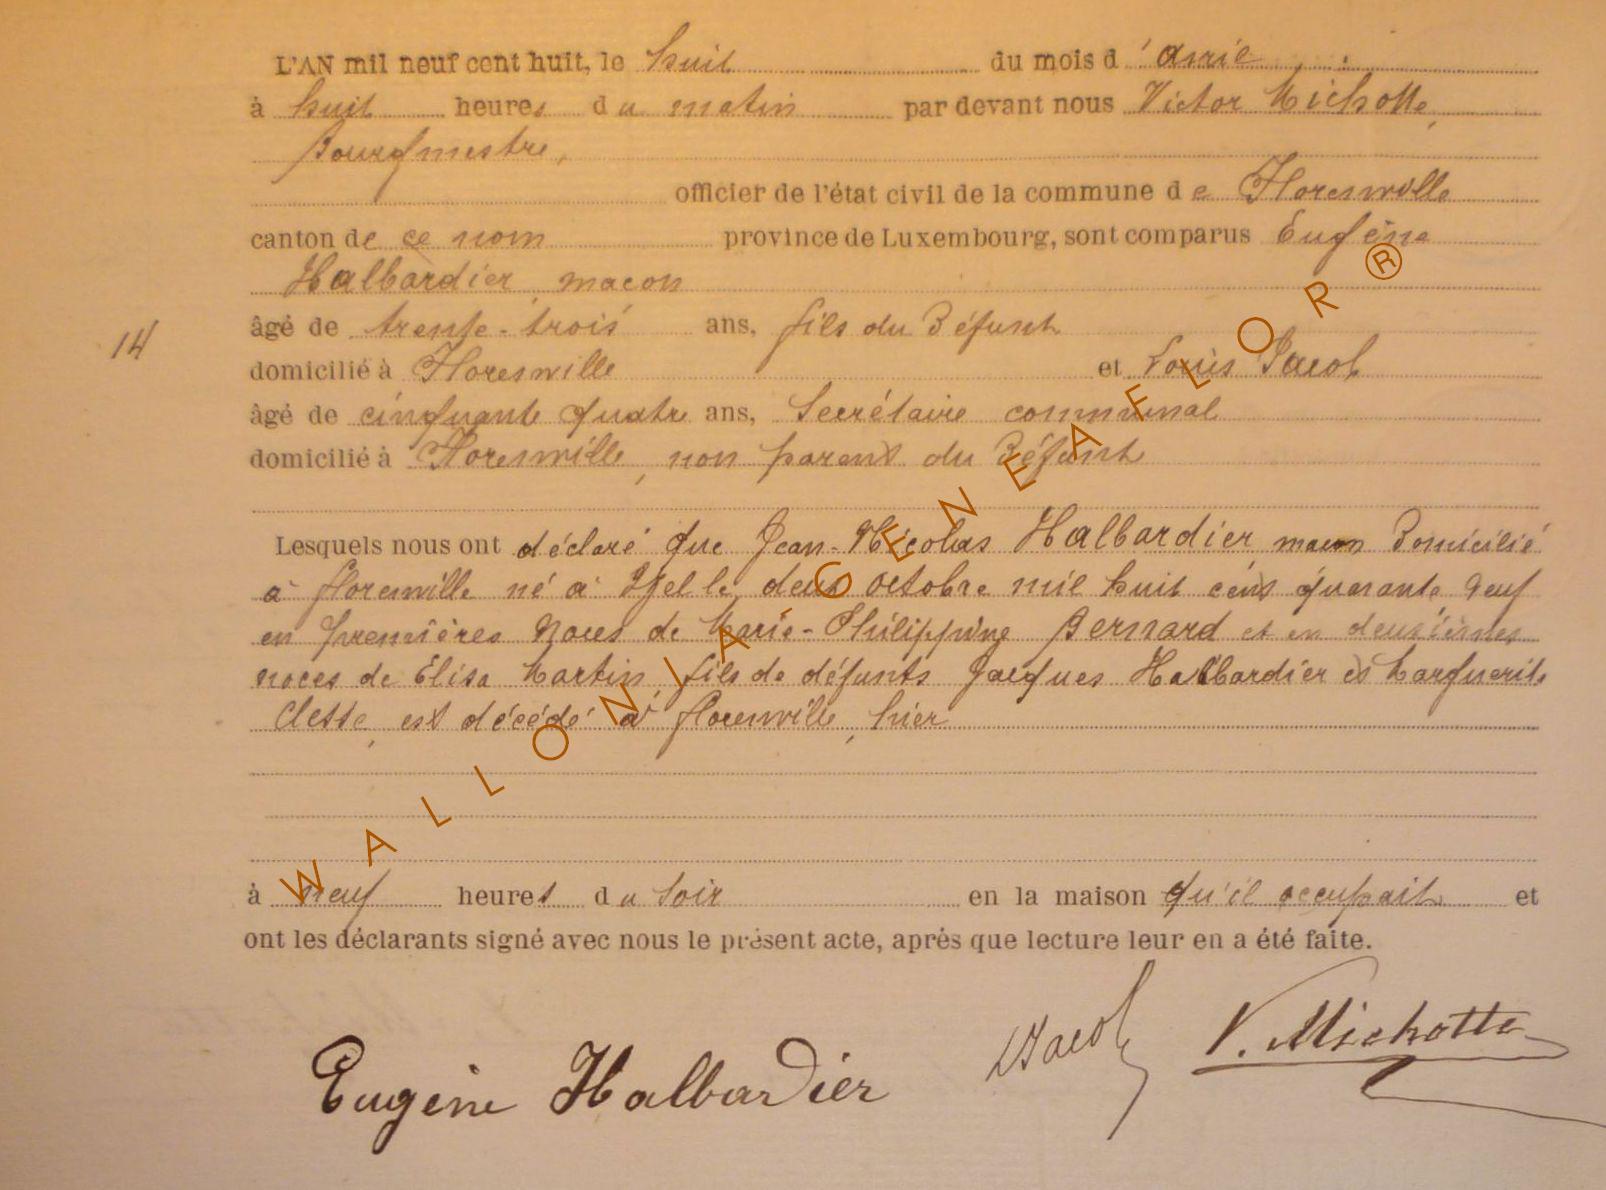 L'AN mil neuf cent huit, le huit du mois d'avril
à huit heures du matin par devant nous Victor Michotte,
Bourgmestre,
officier de l'état civil de la commune de Florenville
canton de ce nom province de Luxembourg, sont comparus Eugène
Halbardier, maçon
âgé de trente-trois ans, fils du Défunt
14
domicilié à Florenville et Louis Jacob
âgé de cinquante quatre ans, Secrétaire communal
domicilié à Florenville, non parent du Défunt
Lesquels nous ont déclaré que Jean-Nicolas Halbardier maçon Domicilié
à florenville né à deux octobre mil huit cent quarante neuf
en premières Noces de Marie-Philippine Bernard et en deuxièmes
noces de Elisa Martin, fils de défunts Jacques Halbardier et Marguerite
Clesse, est décédé à florenville, hier
à neuf heures du soir en la maison qu'il occupait et
ont les déclarants signé avec nous le présent acte, après que lecture leur en a été faite.
Eugène Halbardier LJacob V. Michotte
WALLONIA-GENEAFLOR®